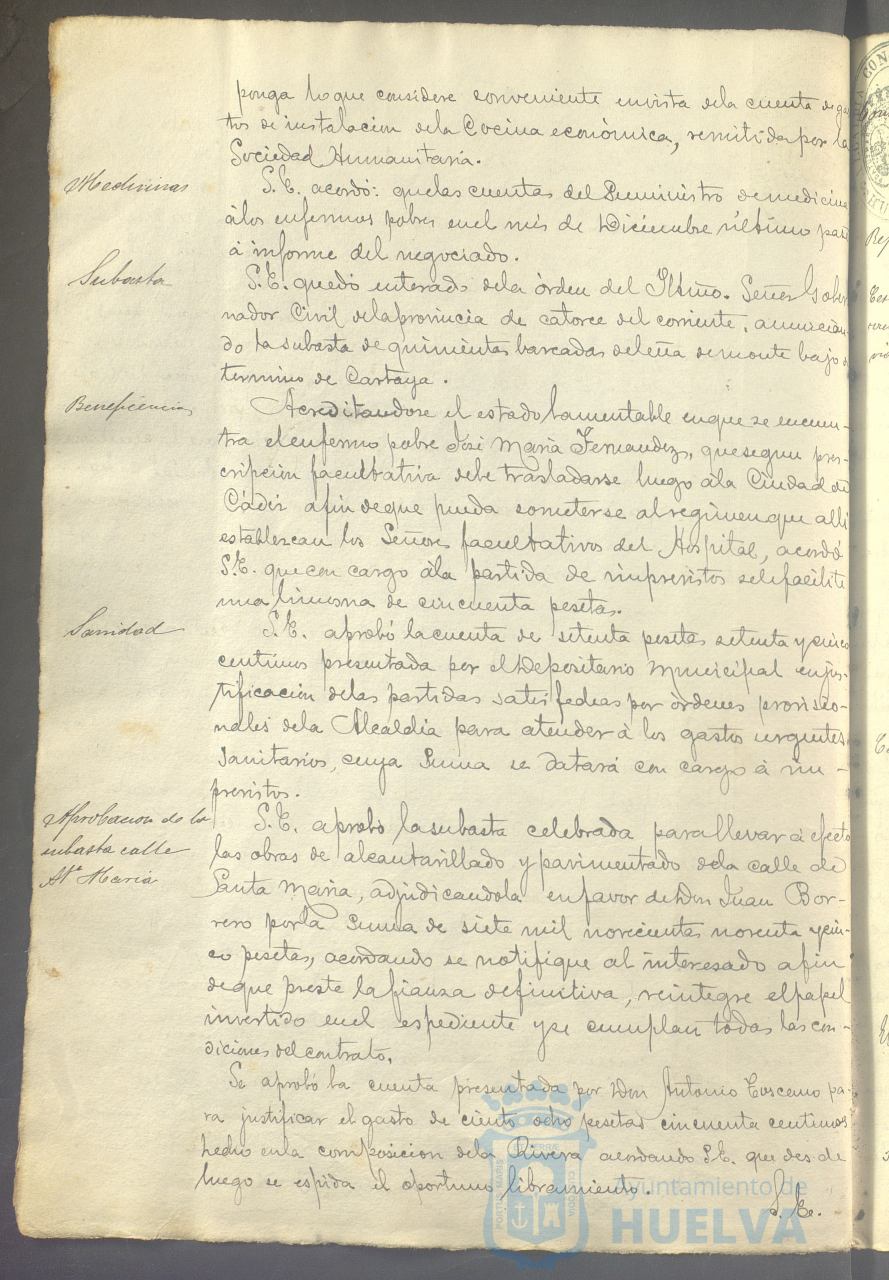 ponga lo que considere conveniente en vista de la cuenta de gas
tos de instalacion de la Cocina económica, remitida por la
Sociedad Humanitaria.
Medicinas
S.E. acordó: que las cuentas del Suministro de medicina
á los enfermos pobres en el més de Diciembre último pase
á informe del negociado.
Subasta
S.E. quedó enterado de la órden del Iltmo. Señor Gober
nador Civil de la provincia de catorce del corriente, anuncian
do la subasta de quinientas barcadas de leña de monte bajo
termino de Cartaya.
Beneficencia
Acreditandose el estado lamentable en que se encuen-
tra el enfermo pobre José Maria Fernandez, que segun pres-
cripción facultativa debe trasladarse luego á la Ciudad de
Cádiz afin de que pueda someterse al regimen que alli
establezcan los Señores facultativos del Hospital, acordó
S.E. que con cargo á la partida de imprevistos se le facilite
una limosna de cincuenta pesetas.
Sanidad
S.E. aprobó la cuenta de setenta pesetas setenta y cinco
centimos presentada por el Depositario Municipal en jus-
tificación de las partidas satisfechas por órdenes provisio-
nales de la Alcaldia para atender á los gastos urgentes
Sanitarios, cuya Suma se datará con cargo á im-
previstos.
Aprobacion de la
subasta calle
Sta. Maria
S.E. aprobó la subasta celebrada para llevar á efecto
las obras de alcantarillado y pavimentado de la calle de
Santa Maria, adjudicandola en favor de Don Juan Bor-
rero por la Suma de siete mil novecientas noventa y cin-
co pesetas, acordando se notifique al interesado afin
de que preste la fianza definitiva, reintegre el papel
invertido en el espediente y se cumplan todas las con-
diciones del contrato.
Se aprobó la cuenta presentada por Don Antonio Toscano pa-
ra justificar el gasto de ciento ocho pesetas cincuenta centimos
hecho en la composicion de la Rivera acordando S.E. que desde
luego se espida el oportuno libramiento.
S. E.
Ayuntamiento de
HUELVA